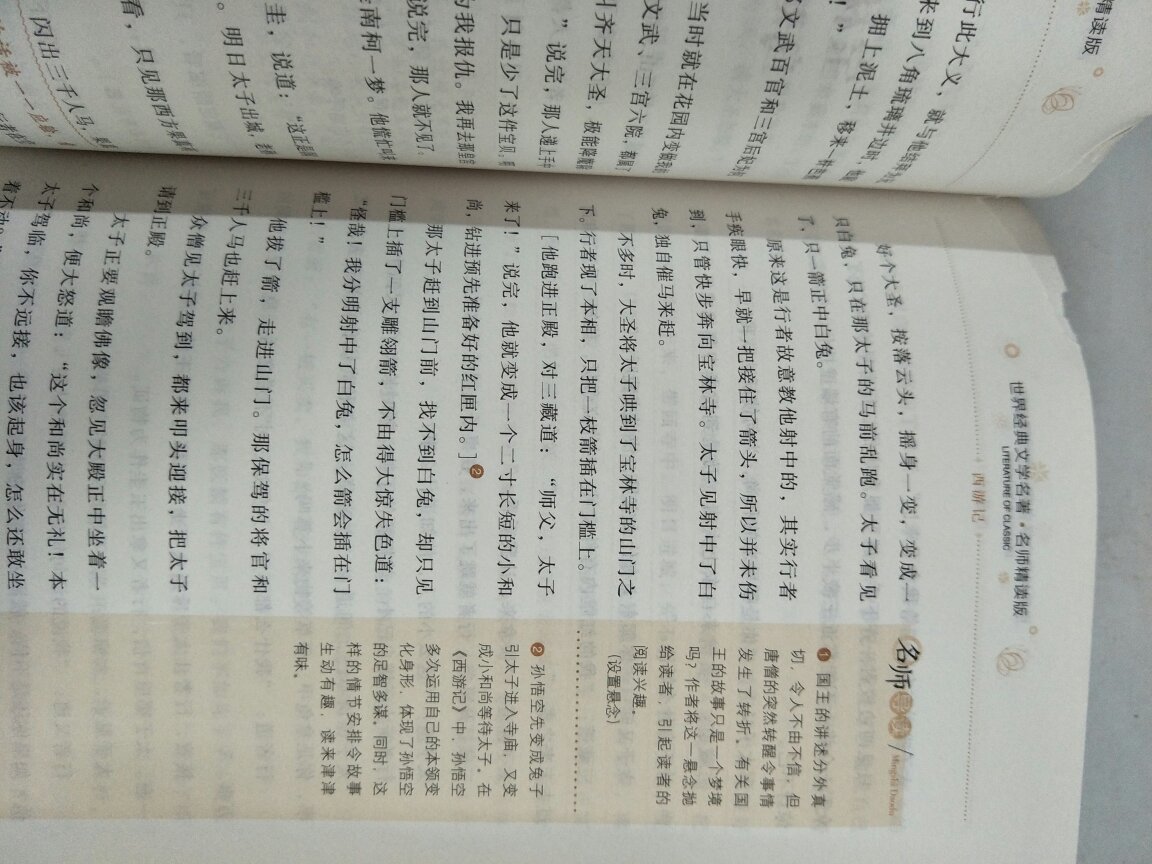 世界经典文学名著·名师精读版
LITERATURE OF CLASSIC
西游记
好个大圣，按落云头，摇身一变，变成一
只白兔，只在那太子的马前乱跑。太子看见
了，只一箭正中白兔。
原来这是行者故意教他射中的，其实行者
手疾眼快，早就一把接住了箭头，所以并未伤
到，只管快步奔向宝林寺。太子见射中了白
兔，独自催马来赶。
不多时，大圣将太子哄到了宝林寺的山门之
下。行者现了本相，只把一枝箭插在门槛上。
［他跑进正殿，对三藏道：“师父，太子
来了！”说完，他就变成一个二寸长短的小和
尚，钻进预先准备好的红匣内。］❷
那太子赶到山门前，找不到白兔，却只见
门槛上插了一支雕翎箭，不由得大惊失色道：
“怪哉！我分明射中了白兔，怎么箭会插在门
槛上！”
他拔了箭，走进山门。那保驾的将官和
三千人马也赶上来。
众僧见太子驾到，都来叩头迎接，把太子
请到正殿。
太子正要观瞻佛像，忽见大殿正中坐着一
个和尚，便大怒道：“这个和尚实在无礼！本
太子驾临，你不远接，也该起身，怎么还敢坐
着不动。”
名师
Mingshi Daodu
❶ 国王的讲述分外真
切，令人不由不信，但
唐僧的突然转醒令事情
发生了转折。有关国
王的故事只是一个梦境
吗？作者将这一悬念抛
给读者，引起读者的
阅读兴趣。
（设置悬念）
❷ 孙悟空先变成兔子
引太子进入寺庙，又变
成小和尚等待太子。在
《西游记》中，孙悟空
多次运用自己的本领变
化身形，体现了孙悟空
的足智多谋。同时，这
样的情节安排令故事
生动有趣，读来津津
有味。
精读版
行此大义，就与他结
来到八角琉璃井边时，他
拥上泥土，移来一株芭蕉
！”
文武百官和三宫后妃
当时就在花园内变做我的
文武，三宫六院，都属了
叫齐天大圣，极能降魔
”说完，那人递上手中
只是少了这件宝贝。
为我报仇。我再去那皇宫
说完，那人就不见了。
南柯一梦。他慌忙
圭，说道：“这正是
。明日太子出城，
看，只见那西方
闪出三千人马，